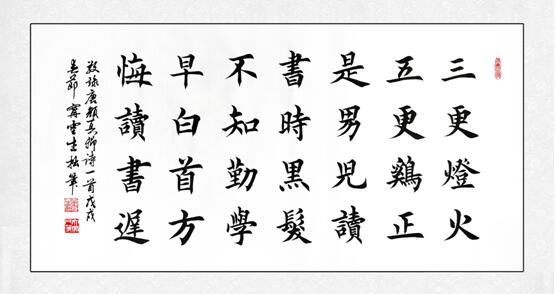 三更燈火
五更鷄正
是男兒讀
書時黑髮
不知勤學
早白首方
悔讀書遲
敬錄唐顏真卿詩一首戊戌